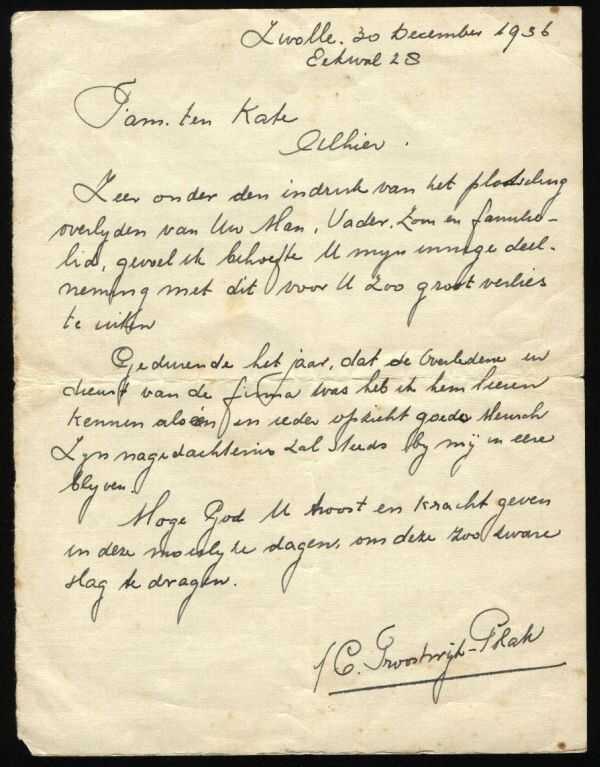 Zwolle. 30 December 1936
Eekwal 28
Fam. ten Kate
Alhier.
Zeer onder den indruk van het plotseling
overlyden van Uw Man, Vader, Zoon en familie-
lid, gevoel ik behoefte U myn innige deel-
neming met dit voor U zoo groot verlies
te uiten
Gedurende het jaar, dat de Overledene in
dienst van de firma was heb ik hem leeren
kennen als een in ieder opzicht goede Mensch
Zyn nagedachtenis zal steeds by mij in eere
blyven.
Moge God U troost en kracht geven
in deze moeilyke dagen, om deze zoo zware
slag te dragen.
C. Troostwijk-Plak